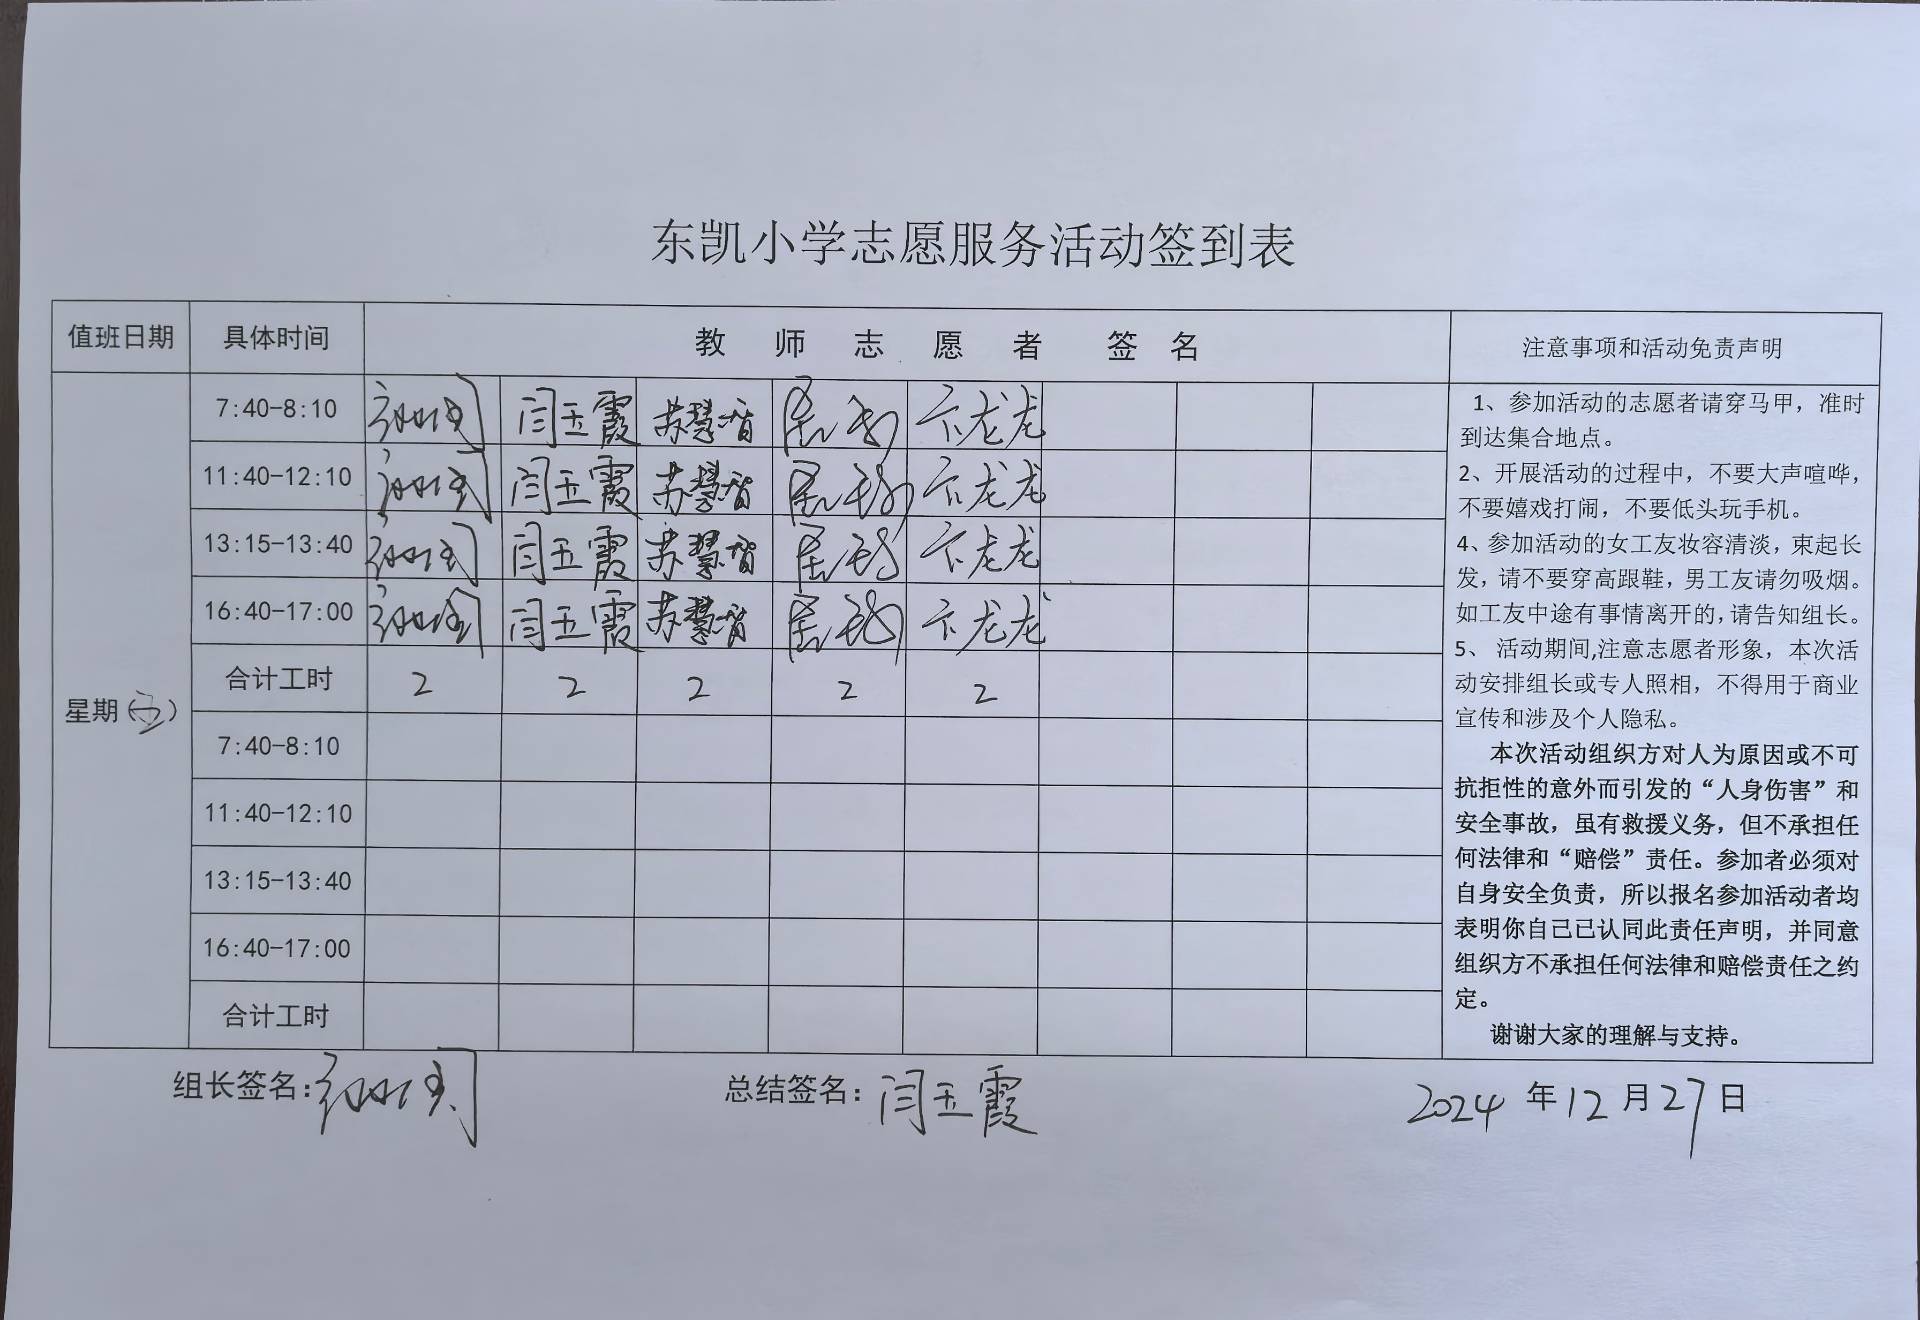 东凯小学志愿服务活动签到表
值班日期 具体时间 教师志愿者签名 注意事项和活动免责声明
星期(五)
7:40-8:10 闫玉霞 苏慧智 卞龙龙
11:40-12:10 闫玉霞 苏慧智 卞龙龙
13:15-13:40 闫玉霞 苏慧智 卞龙龙
16:40-17:00 闫玉霞 苏慧智 卞龙龙
合计工时 2 2 2 2 2
7:40-8:10
11:40-12:10
13:15-13:40
16:40-17:00
合计工时
1、参加活动的志愿者请穿马甲，准时
到达集合地点。
2、开展活动的过程中，不要大声喧哗，
不要嬉戏打闹，不要低头玩手机。
4、参加活动的女工友妆容清淡，束起长
发，请不要穿高跟鞋，男工友请勿吸烟。
如工友中途有事情离开的，请告知组长。
5、 活动期间,注意志愿者形象，本次活
动安排组长或专人照相，不得用于商业
宣传和涉及个人隐私。
本次活动组织方对人为原因或不可
抗拒性的意外而引发的“人身伤害”和
安全事故，虽有救援义务，但不承担任
何法律和“赔偿”责任。参加者必须对
自身安全负责，所以报名参加活动者均
表明你自己已认同此责任声明，并同意
组织方不承担任何法律和赔偿责任之约
定。
谢谢大家的理解与支持。
组长签名: 总结签名: 闫玉霞 2024年12月27日